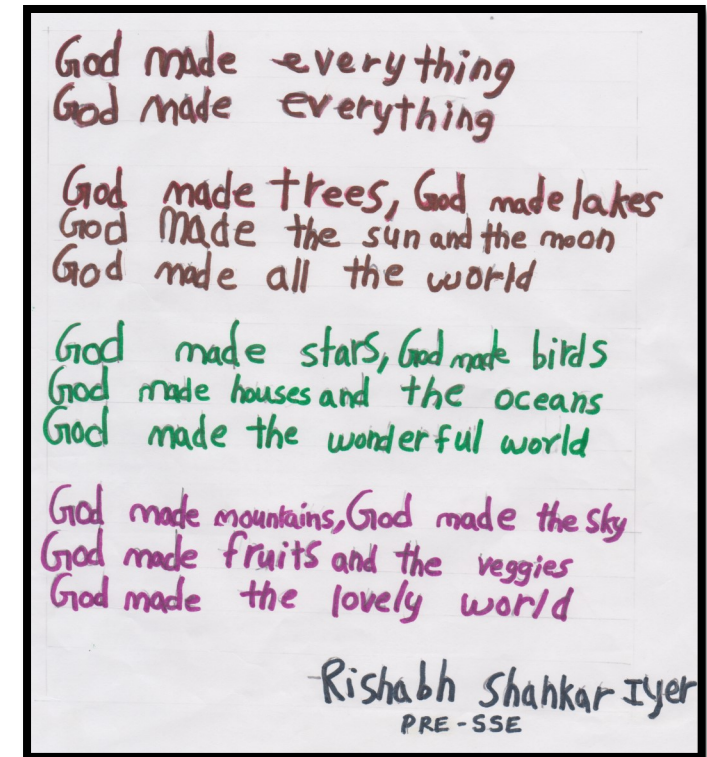 God made everything
God made everything
God made trees, God made lakes
God made the sun and the moon
God made all the world
God made stars, God made birds
God made houses and the oceans
God made the wonderful world
God made mountains, God made the sky
God made fruits and the veggies
God made the lovely world
Rishabh Shankar Iyer
PRE-SSE